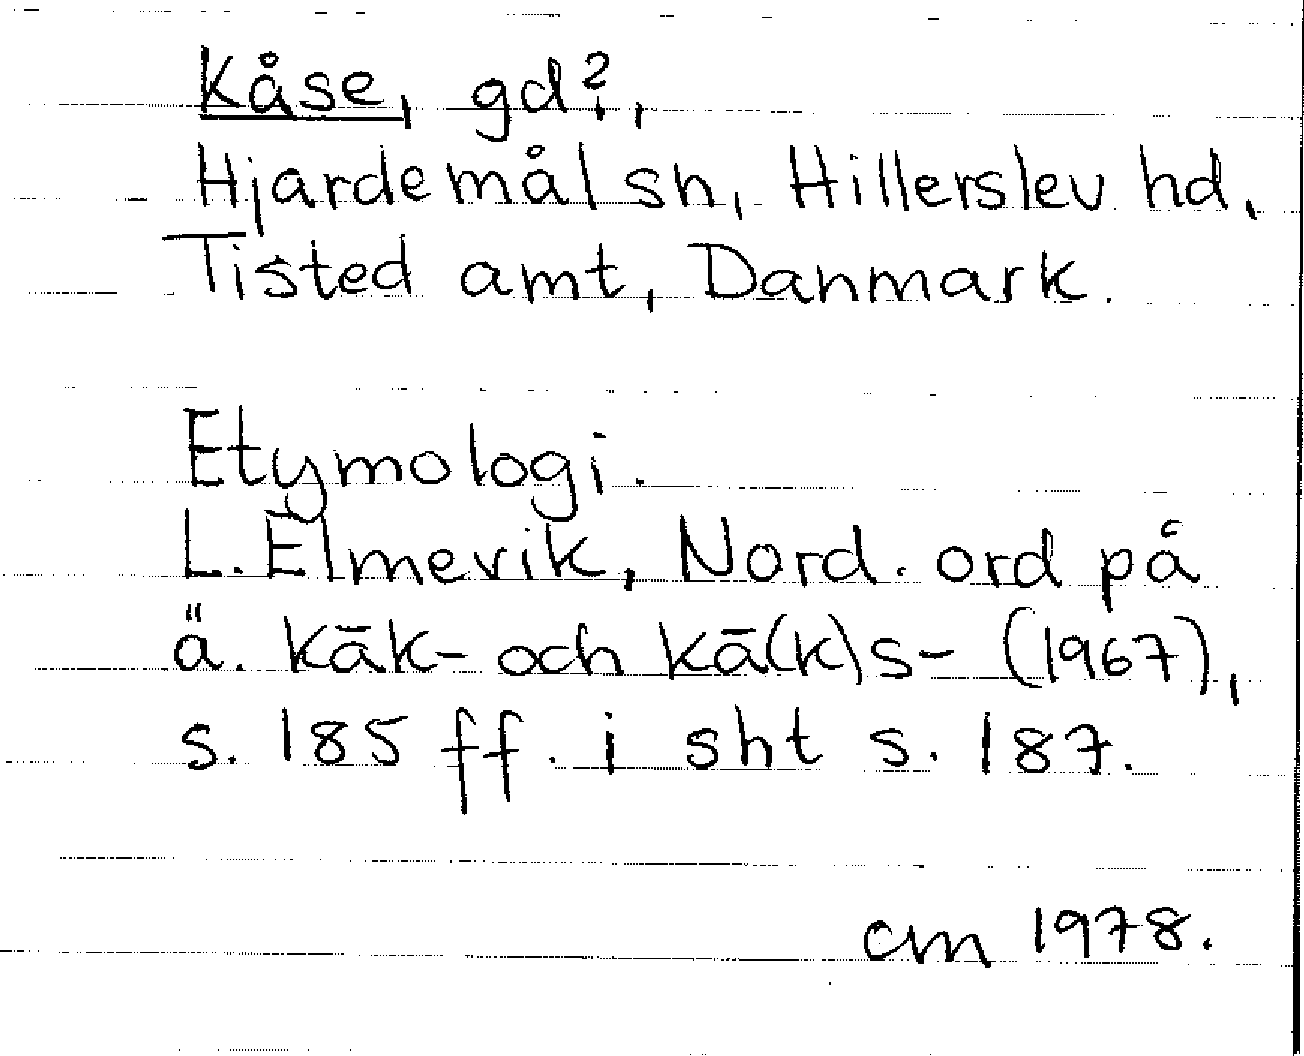 Kåse, gd?,
Hjardemål sn, Hillerslev hd,
Tisted amt, Danmark.
Etymologi.
L. Elmevik, Nord. ord på
ä. kāk- och kā(k)s- (1967),
s. 185 ff. i sht s. 187.
cm 1978.